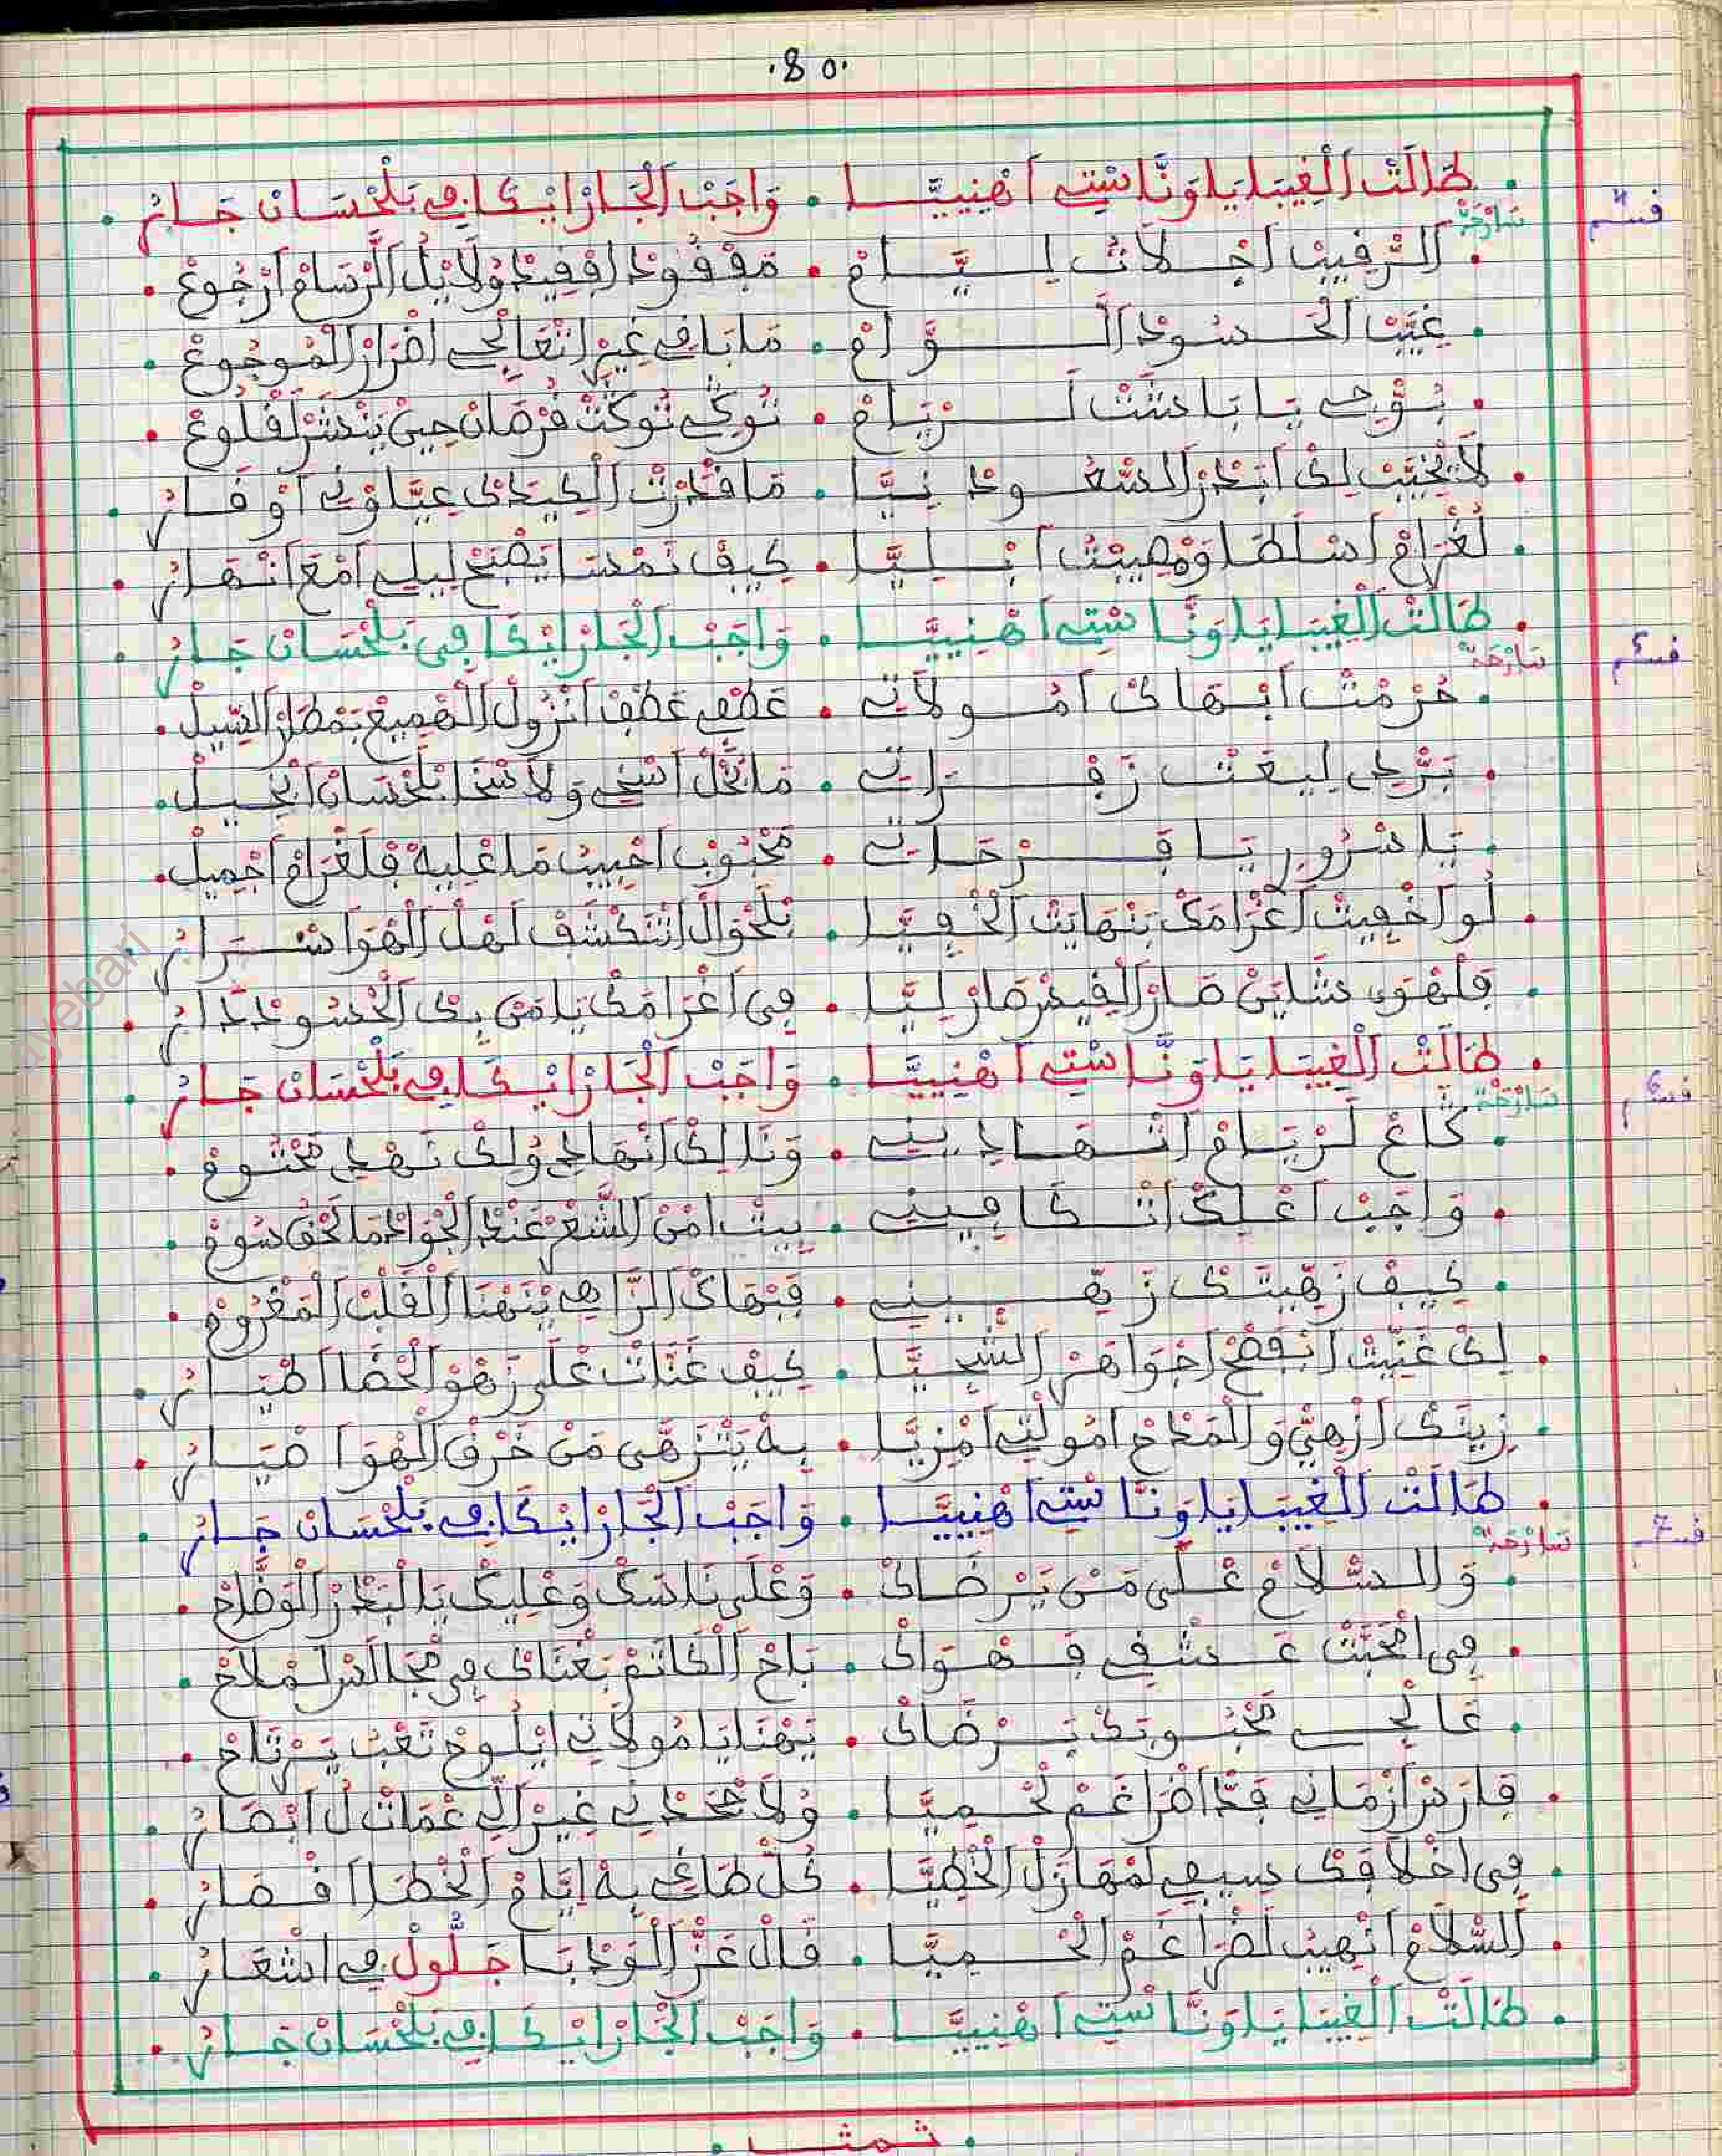 .80.
قسم 4
. طَالَتْ الْغِيبَا يَا وَنَّاسْتِي اهْنِيَّا . وَاجَبْ الْجَارْ ايْكَافِي بَلْحْسَانْ جَارُ .
سَارْحَة
. الرْقِيبْ اخْلَاتْ لِيَّامْ . مَفْقُودْ افْقِيدْ وُلَا يْلُ الرْسَامْ ارْجُوعْ .
. غِيَّبْ الْحْسُودْ اللَّوَّامْ . مَا بَا فِي غِيرْ اتْعَالْجِي اضْرَارْ الْمُوجُوعْ .
. بُوحِي يَا بَاشَتْ لَرْيَامْ . تُوكِي تُوكْتْ قُرْصَانْ حِينْ يَنْشَرْ لَقْلُوعْ .
. لَا تْخِيَّبْ لِكْ ابْدَرْ السْعُودْ نِيَّا . مَا قْدَرْتْ الْكِيدَكْ عِيَّاوْنِي اوْقَارُ .
. لَغْرَامْ اسْلَطَا وَمْصِيبْتْ ابْلِيَّا . كِيفْ نَمْسَا يَصْبَحْ لِيلِي امْعَ انْهَارُ .
قسم 5
. طَالَتْ الْغِيبَا يَا وَنَّاسْتِي اهْنِيَّا . وَاجَبْ الْجَارْ ايْكَافِي بَلْحْسَانْ جَارُ .
سَارْحَة
. حُرْمْتْ ابْهَاكْ امُولَاتِي . عَطْفِي عَطْفْ انْزُولْ الْهْمِيعْ بَمْطَارْ السِّيلْ .
. بَرْدِي لِيعْتْ زَفْرَاتِي . مَا بْخَلْ اسْخِي وَلَا سْخَا بَلْحْسَانْ ابْخِيلْ .
. يَا سْرُورِي يَا فَرْحَاتِي . مَحْبُوبْ احْبِيبْ مَا عْلِيهْ فَلْغْرَامْ اجْمِيلْ .
. لُو اخْفِيتْ اغْرَامَكْ بَنْهَايْتْ الْخْفِيَّا . بَلْحْوَالْ اتَّكْشَفْ لَهْلْ الْهْوَا سْرَارُ .
. فَلْهْوَى شَايَنْ صَارْ الْقِيسْ صَارْ لِيَّا . فِي اغْرَامَكْ يَا مَنْ بِكْ الْحْسُودْ دَارُ .
قسم 6
. طَالَتْ الْغِيبَا يَا وَنَّاسْتِي اهْنِيَّا . وَاجَبْ الْجَارْ ايْكَافِي بَلْحْسَانْ جَارُ .
سَارْحَة
. كَاعْ لَرْيَامْ اتْهَادِينِي . وَنَا لِكْ انْهَادِي وُلِكْ نَهْدِي مَخْتُومْ .
. وَاجَبْ اعْلِكْ اتْكَافِينِي . بِيتْ امْنْ الشْعَرْ عَنْدْ الْجْوَادْ مَا لَحْقُ سُومْ .
. كِيفْ زَهِّيتَكْ زَهِّينِي . فَبْهَاكْ الزَّاهِي يَنْهْنَا الْقَلْبْ الْمَغْرُومْ .
. لِكْ غَنِّيتْ ابْفَصْحْ اجْوَاهَرْ السْجِيَّا . كِيفْ غَنَّاتْ عْلَى زَهْوْ الْخْضَا اطْيَارُ .
. زِينَكْ ازْهِيّ وَالْمَدَّاحْ امُولْتِي امْزِيَّا . بِهْ يَتْنَزَّهَى مَنْ خَرْقْ الْهْوَا صْيَارُ .
قسم 7
. طَالَتْ الْغِيبَا يَا وَنَّاسْتِي اهْنِيَّا . وَاجَبْ الْجَارْ ايْكَافِي بَلْحْسَانْ جَارُ .
سَارْحَة
. وَالسْلَامْ عْلَى مَنْ يَرْضَاكْ . وَعْلَى نَاسَكْ وَعْلِيكْ يَا الْبْدَرْ الْوَضَّاحْ .
. فِي امْحَبَّتْ عَشْقِي فَهْوَاكْ . بَاحْ الْكَاتَمْ بَغْنَاكْ فِي مْجَالَسْ لَمْلَاحْ .
. عَالْجِي مَحْبُوبَكْ بَرْضَاكْ . يَهْنَا يَا مُولَاتِي ايْلُوحْ تَعْبُ يَرْتَاحْ .
. فَارَسْ ازْمَانِي قَدَّا ضَرْاغَمْ لَحْمِيَّا . وُلَا جْحَدْنِي غِيرْ الِّي عْمَاتْ لُ ابْصَارُ .
. فِي اخْلَاقَكْ سِيفِي لَمْهَازَلْ الْخْطِيَّا . كُلّْ طَاغِي بِهْ ايَّامْ الْخْطَرْ ا قْصَارُ .
. السْلَامْ انْهِيبْ لَضْرَاغَمْ الْحْمِيَّا . قَالْ عَزْ الْوَدْ بَا جَلُّولْ فِي اشْعَارُ .
. طَالَتْ الْغِيبَا يَا وَنَّاسْتِي اهْنِيَّا . وَاجَبْ الْجَارْ ايْكَافِي بَلْحْسَانْ جَارُ .
. تمت .